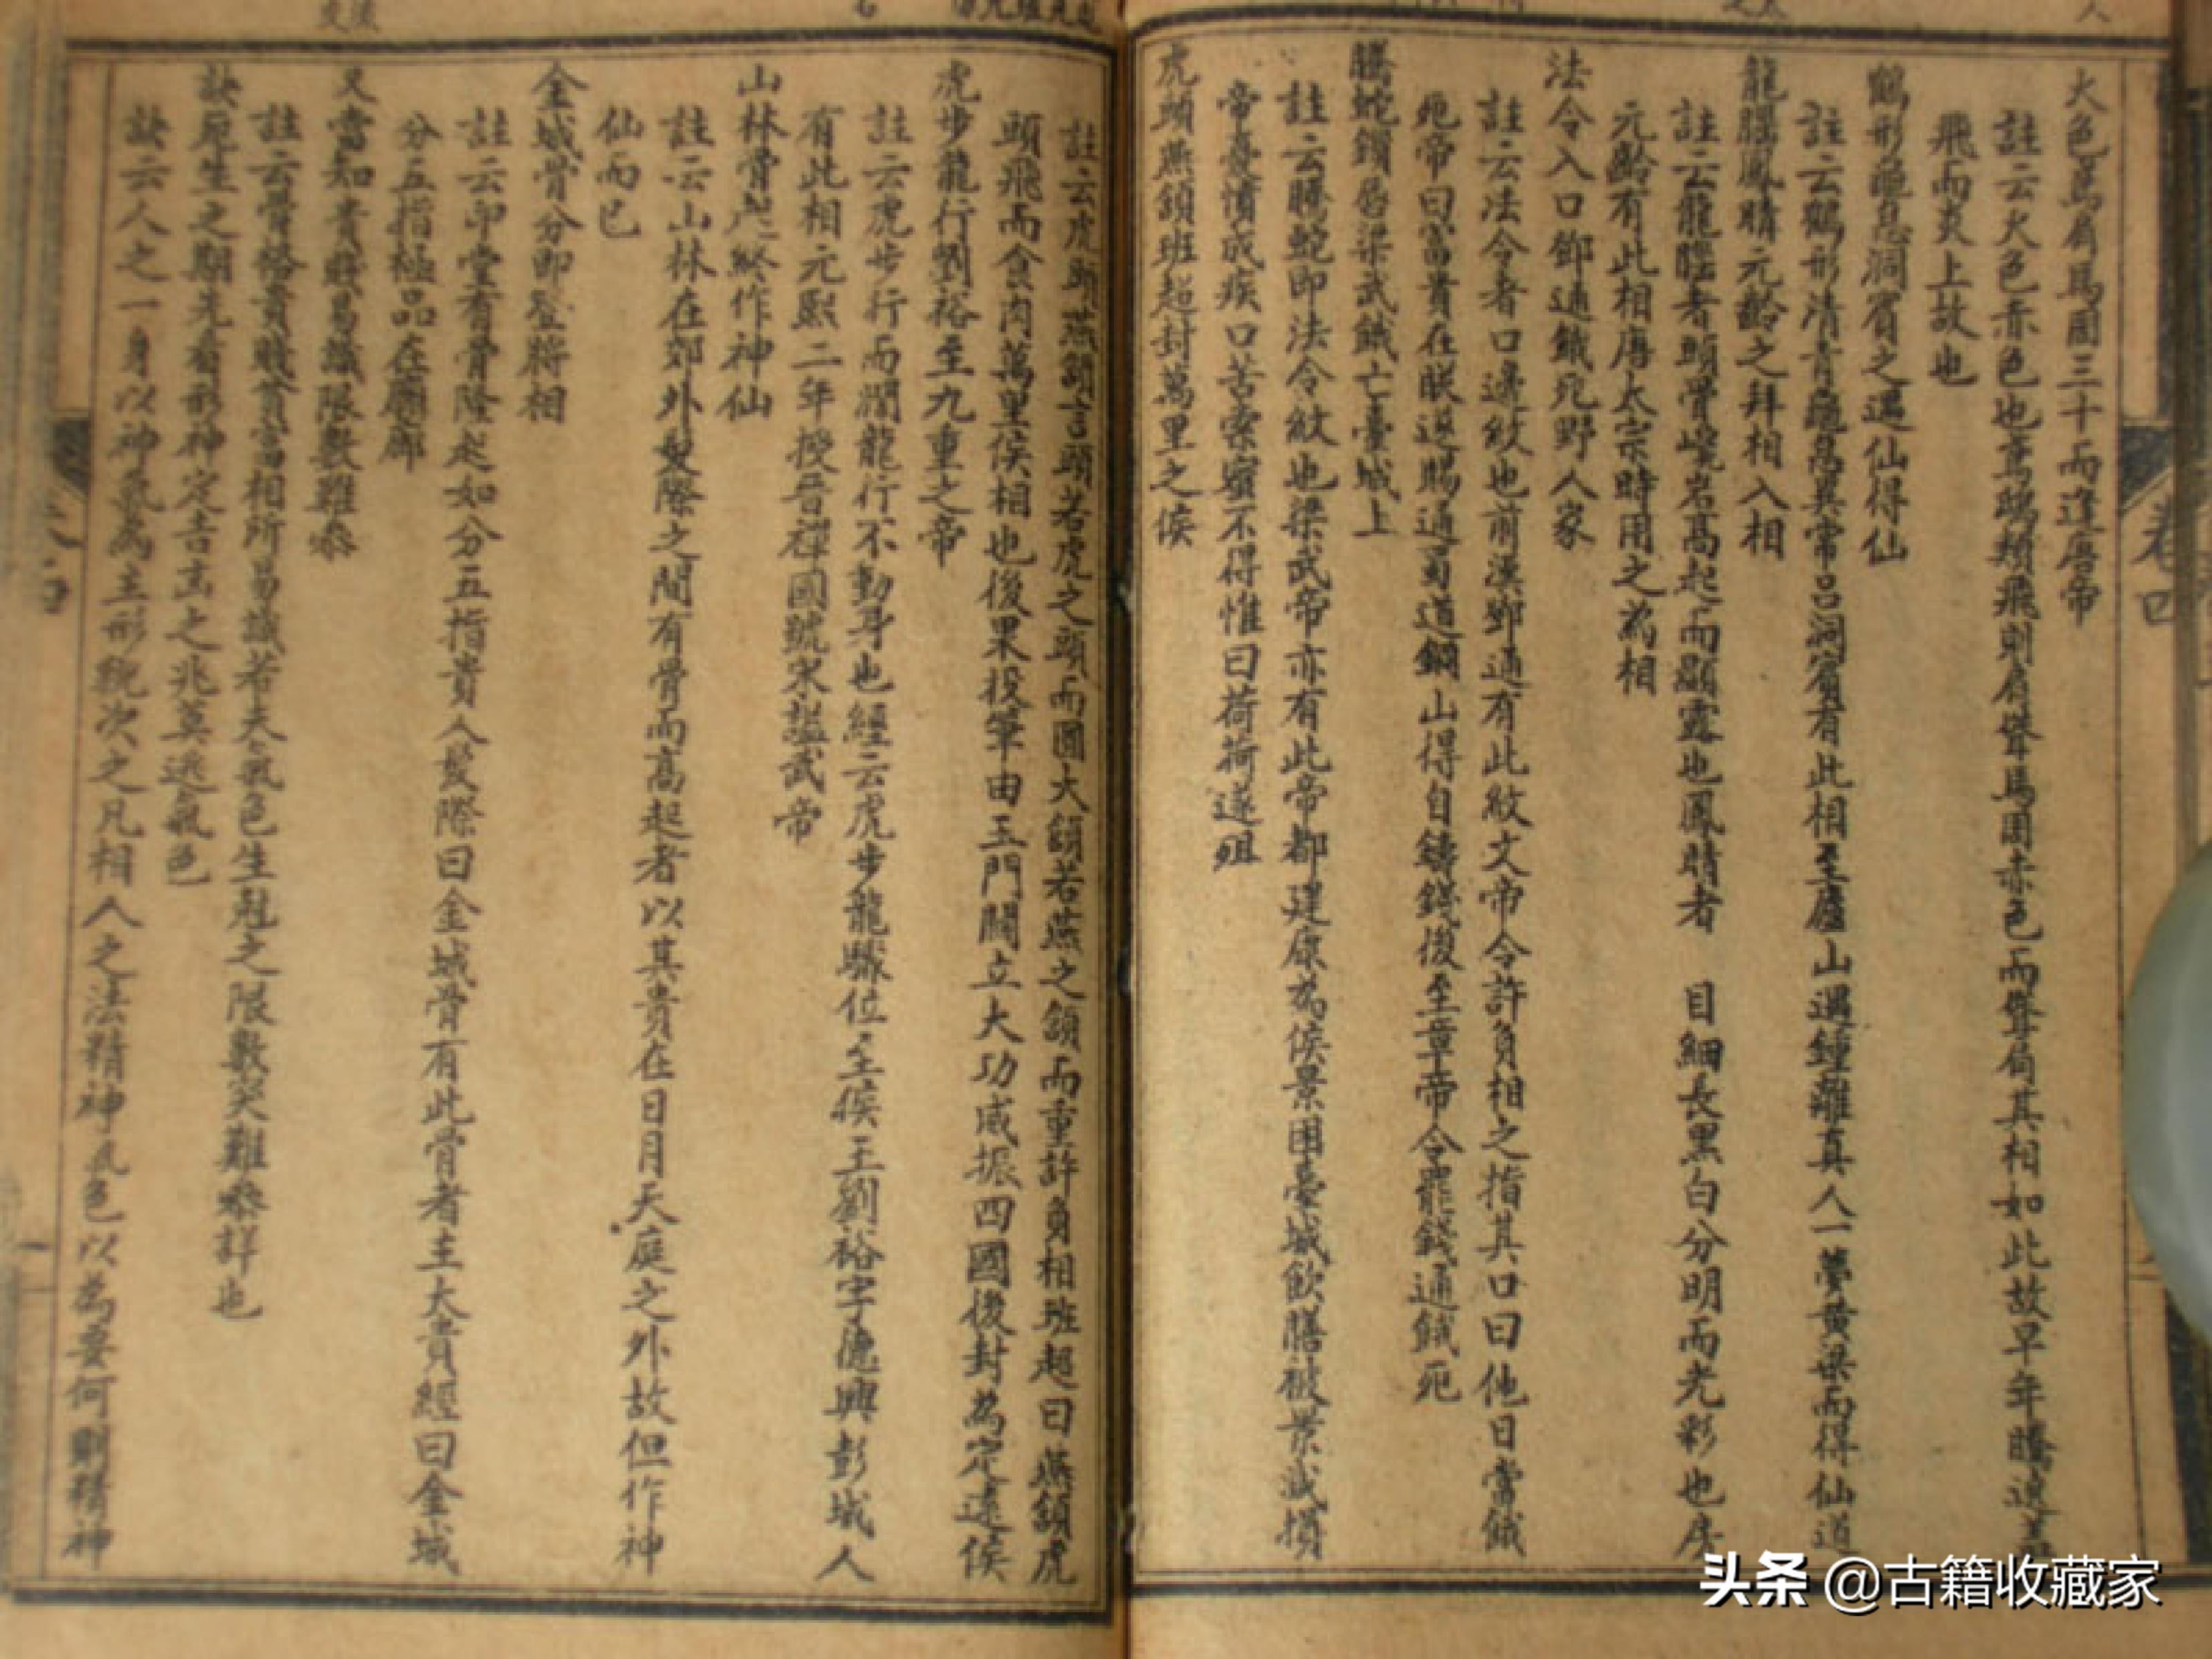 火色鳶肩馬周三十而逢唐帝
註云火色赤色也鳶鴟類飛則肩聳馬周赤色而聳肩其相如此故早年騰達蓋
飛而炎上故也
鶴形龜息洞賓之遇仙得仙
註云鶴形清奇龜息異常呂洞賓有此相至廬山遇鍾離真人一夢黃梁而得仙道
龍腦鳳睛元齡之拜相入相
註云龍腦者頭骨峻岩高起而顯露也鳳睛者 目細長黑白分明而光彩也房
元齡有此相唐太宗時用之為相
法令入口鄧通餓死野人家
註云法令者口邊紋也前漢鄧通有此紋文帝令許負相之指其口曰他日當餓
死帝曰富貴在朕遂賜通蜀道銅山得自鑄錢後至章帝令罷錢通餓死
騰蛇鎖唇梁武餓亡臺城上
註云騰蛇即法令紋也梁武帝亦有此帝都建康為侯景困臺城飲膳被景減損
帝憂憤成疾口苦索蜜不得惟曰荷荷遂殂
虎頭燕頷班超封萬里之侯
註云虎頭燕頷言頭若虎之頭而圓大頷若燕之頷而重許負相班超曰燕頷虎
頭飛而食肉萬里侯相也後果投筆由玉門關立大功威振四國後封為定遠侯
虎步龍行劉裕至九重之帝
註云虎步行而濶龍行不動身也經云虎步龍驤位至侯王劉裕字德輿彭城人
有此相元熙二年授晉禪國號宋謚武帝
山林骨起終作神仙
註云山林在郊外髮際之間有骨而高起者以其貴在日月天庭之外故但作神
仙而已
金城骨分即登將相
註云印堂有骨隆起如分五指貴人髮際曰金城骨有此骨者主大貴經曰金城
分五指極品在廟廊
又當知貴賤易識限數難參
註云骨格貴賤貧富相所易識若夫氣色生尅之限數突難參詳也
訣死生之期先看形神定吉凶之兆莫逃氣色
訣云人之一身以神氣為主形貌次之凡相人之法精神氣色以為要何則精神
卷四
头条 @古籍收藏家